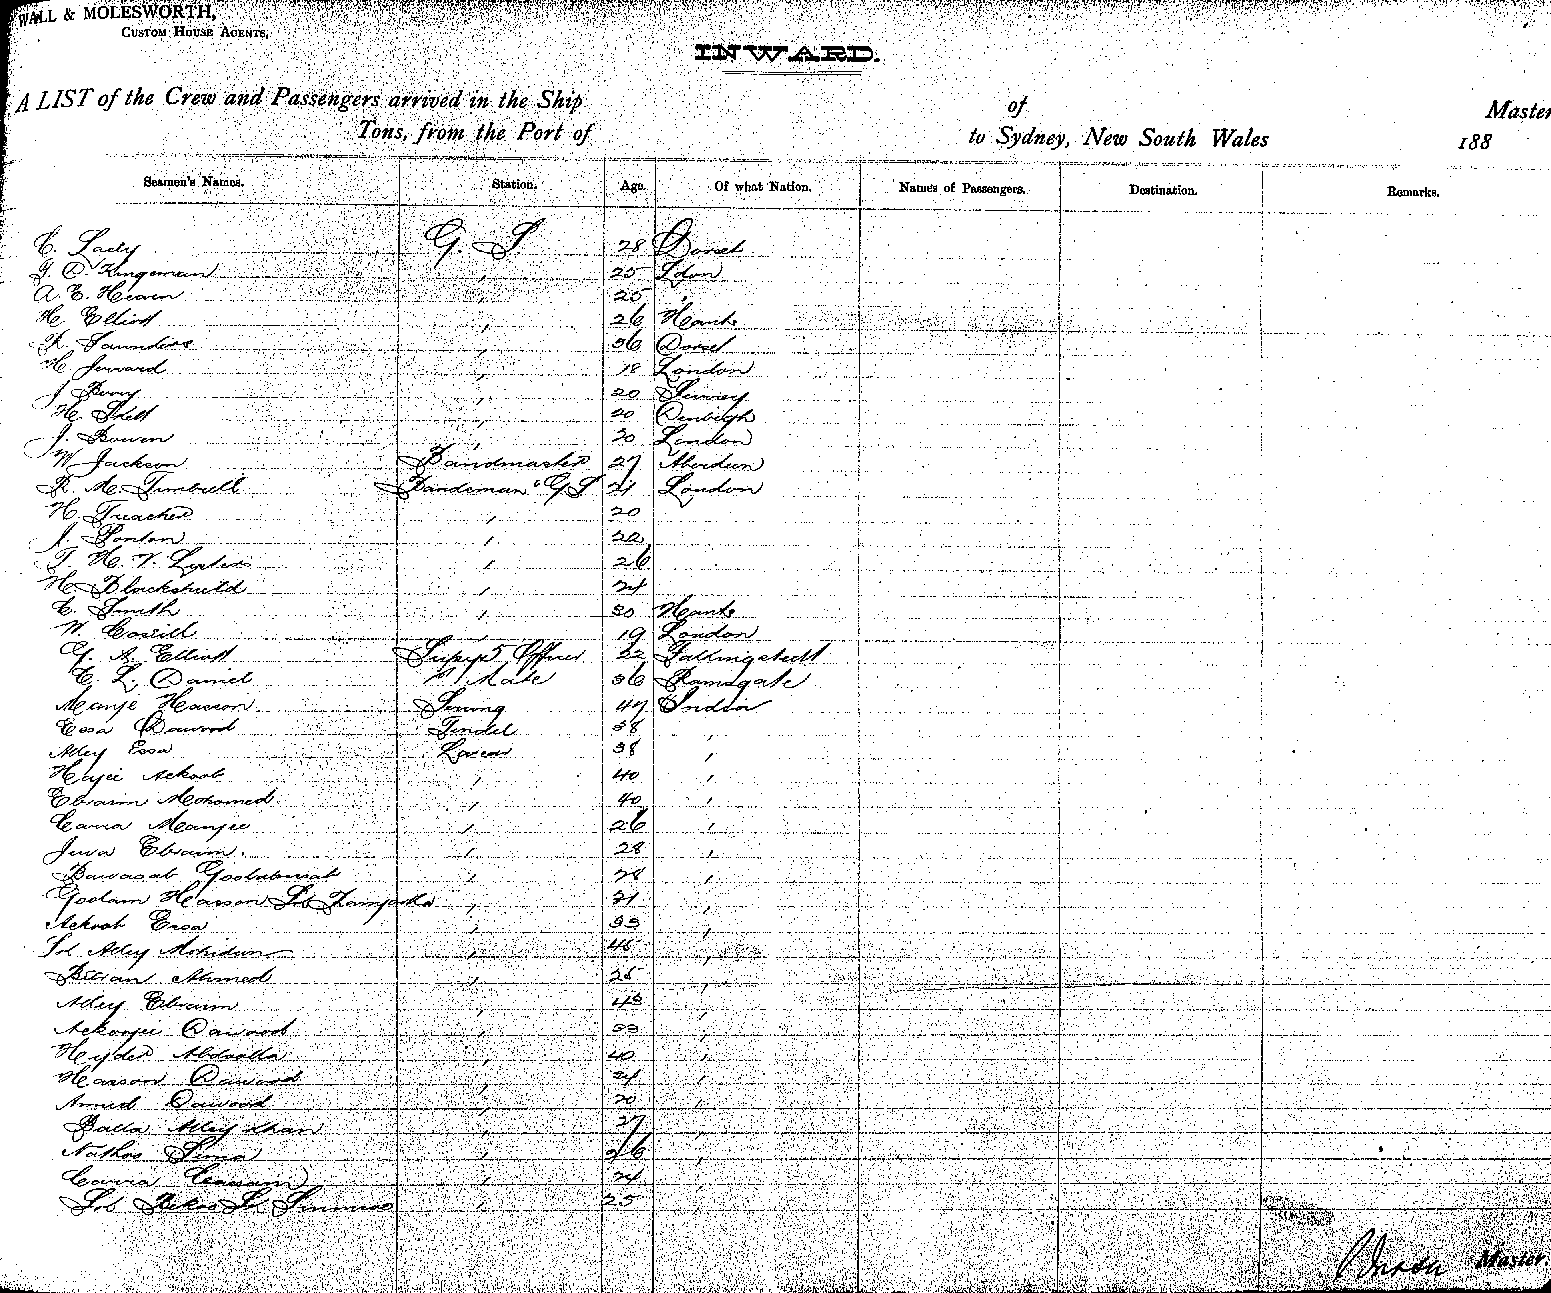 WALL & MOLESWORTH,
CUSTOM HOUSE AGENTS,
INWARD.
A LIST of the Crew and Passengers arrived in the Ship of Master
Tons, from the Port of to Sydney, New South Wales 188
Seamen's Names. Station. Age. Of what Nation. Names of Passengers. Destination. Remarks.
E. Lacey G. S. 28 Dorset
G. D. Kingeman " 25 Ldon
A. E. Heaven " 25 "
H. Elliott " 26 Hants
F. Saunders " 36 Dorset
H. Seward " 18 London
J. Berry " 20 Surrey
H. Skett " 20 Denbigh
J. Bowen " 20 London
W. Jackson Bandmaster 27 Aberdeen
F. M. Timbrell Bandsman & G S 21 London
H. Treacher " 20
J. Ponton " 22
T. H. V. Lester " 26
H. Blackshield " 24
E. Smith " 30 Hants
W. Cowill " 19 London
G. A. Elliott Supy 5 Officer 22
E. L. Daniel Mate 36 Ramsgate
Manje Hasson Serang 47 India
Essa Dawood Tindel 38 "
Alley Essa Lascar 38 "
Hajee Ackoob " 40 "
Ebraim Mohamed " 40 "
Cawa Manjee " 26 "
Jiwa Ebraim " 28 "
Bawasab " 28 "
Goolam Hasson " 21 "
Ackoob Essa " 33 "
Alley Mohidun " 45 "
Ahmed " 25 "
Alley Ebraim " 48 "
Ackoojee Dawood " 33 "
Hyder Abdoolla " 40 "
Hasson Dawood " 24 "
Amed Dawood " 20 "
Balla Alleybhan " 27 "
Nathoo " 26 "
Cawa Cassam " 24 "
" 25
Master.